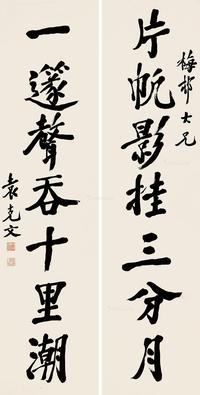 片帆影挂三分月
梅邨大兄
一籧聲吞十里潮
袁克文